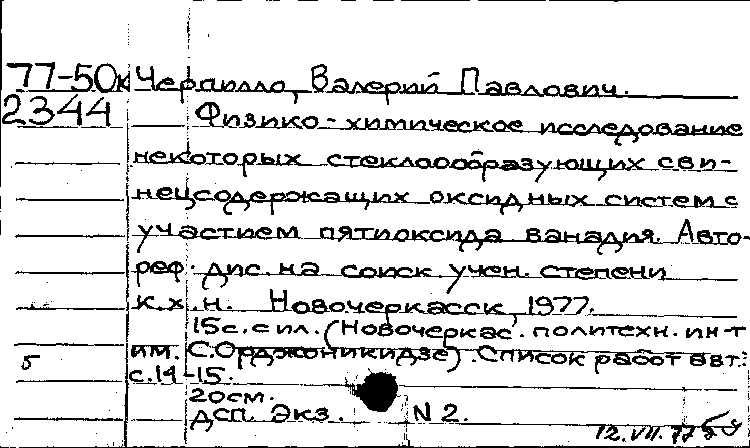 77-50к Черпилло, Валерий Павлович.
2344 Физико-химическое исследование
некоторых стеклообразующих сви-
нецсодержащих оксидных систем с
участием пятиоксида ванадия. Авто-
реф. дис. на соиск. учен. степени
к.х.н. Новочеркасск, 1977.
15с. с ил. (Новочеркас. политехн. ин-т
5 им. С. Орджоникидзе). Список работ авт.:
с. 14-15.
20см.
ДСП. Экз. N 2.
12.VII.77